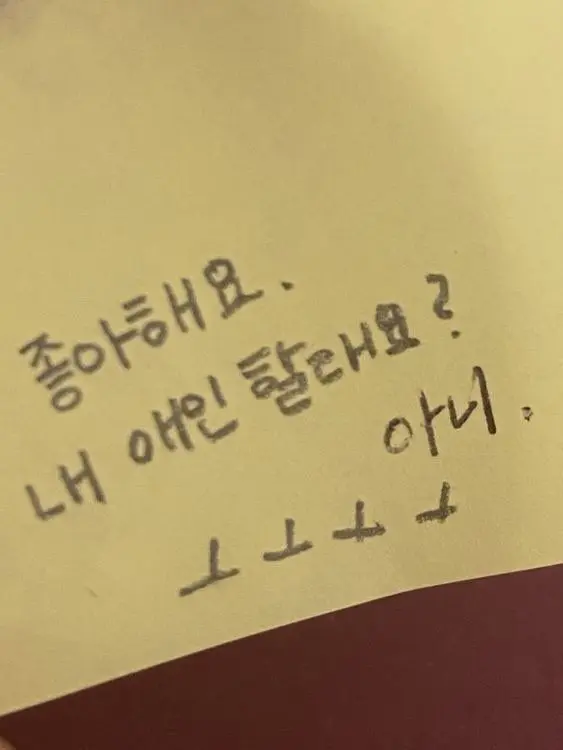 좋아해요.
내 애인 할래요?
아니.
ㅗㅗㅗㅗ